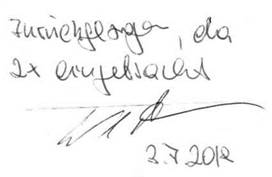 Zurückgezogen, da
2x eingebracht
3.7.2012